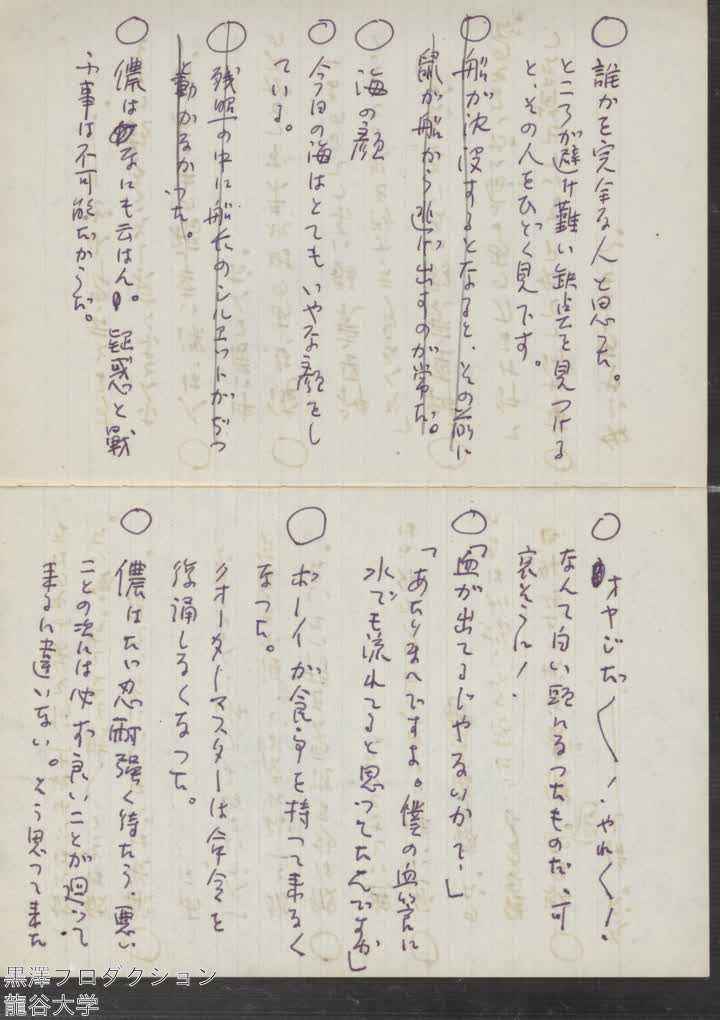 ○ 誰かを完全な人と思った。
ところが避け難い缺点を見つける
と、その人をひどく見下す。
○ 船が沈没するとなると、その前に
鼠が船から逃げ出すのが常だ。
○ 海の顔
○ 今日の海はとてもいやな顔をし
ている。
○ 残照の中に船長のシルエットがぢつ
と動かなかつた。
○ 儂はなにも云はん。疑惑と戰
ふ事は不可能だからだ。
○ オヤジだ〱！やれ〱！
なんて白い頭になつたものだ、可
哀そうに！
○ 「血が出てるぢやないかて」
「あたりまへですよ。僕の血管に
水でも流れてると思つてたんですか」
○ ボーイが食事を持つて来なく
なつた。
クオーターマスターは命令を
復誦しなくなつた。
○ 儂はたゞ忍耐強く待たう、悪い
ことの次には必ず良いことが廻って
来るに違いない。そう思つて来た
黒澤プロダクション
龍谷大学